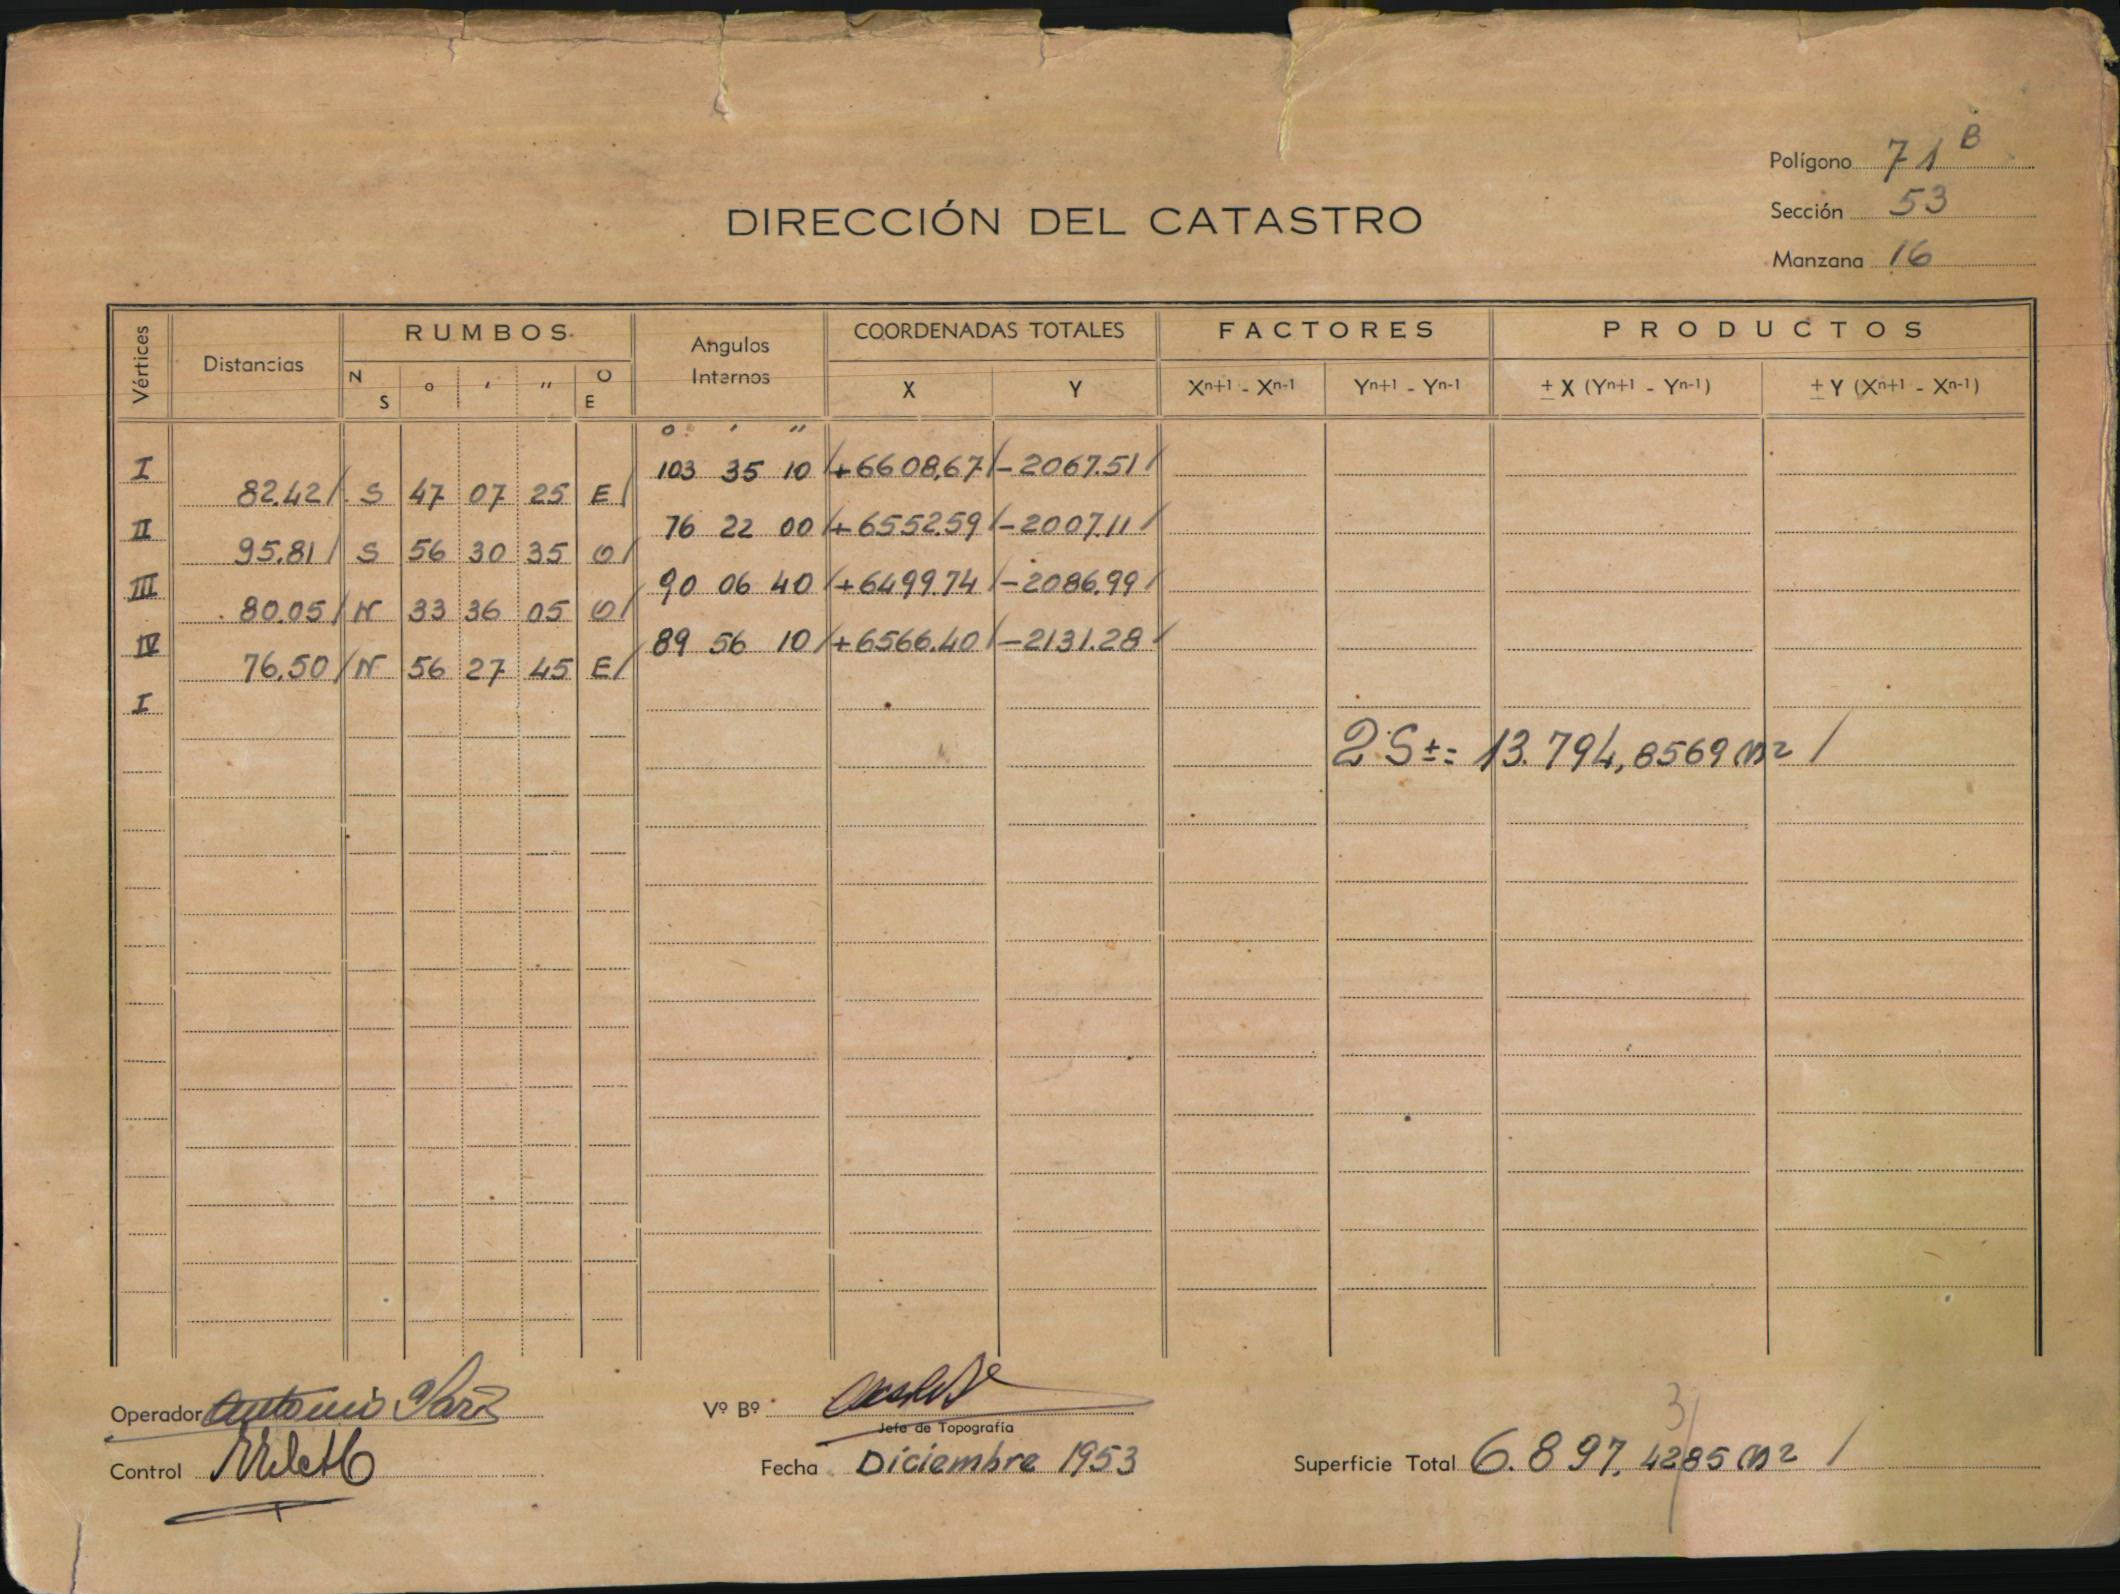 Polígono 71 B
Sección 53
Manzana 16
DIRECCIÓN DEL CATASTRO
Vértices Distancias RUMBOS Angulos Internos COORDENADAS TOTALES FACTORES PRODUCTOS
N S o ' '' O E X Y Xn+1 - Xn-1 Yn+1 - Yn-1 ± X (Yn+1 - Yn-1) ± Y (Xn+1 - Xn-1)
o ' ''
I 103 35 10 +6608,67 -2067.51
82.42 S 47 07 25 E
II 76 22 00 +6552.59 -2007.11
95.81 S 56 30 35 O
III 90 06 40 +6499.74 -2086.99
80.05 N 33 36 05 O
IV 89 56 10 +6566.40 -2131.28
76.50 N 56 27 45 E
I
2 S ± = 13.794,8569 m2
Operador Antonio
Vº Bº
Jefe de Topografía
Control
Fecha Diciembre 1953
3
Superficie Total 6.897,4285 m2